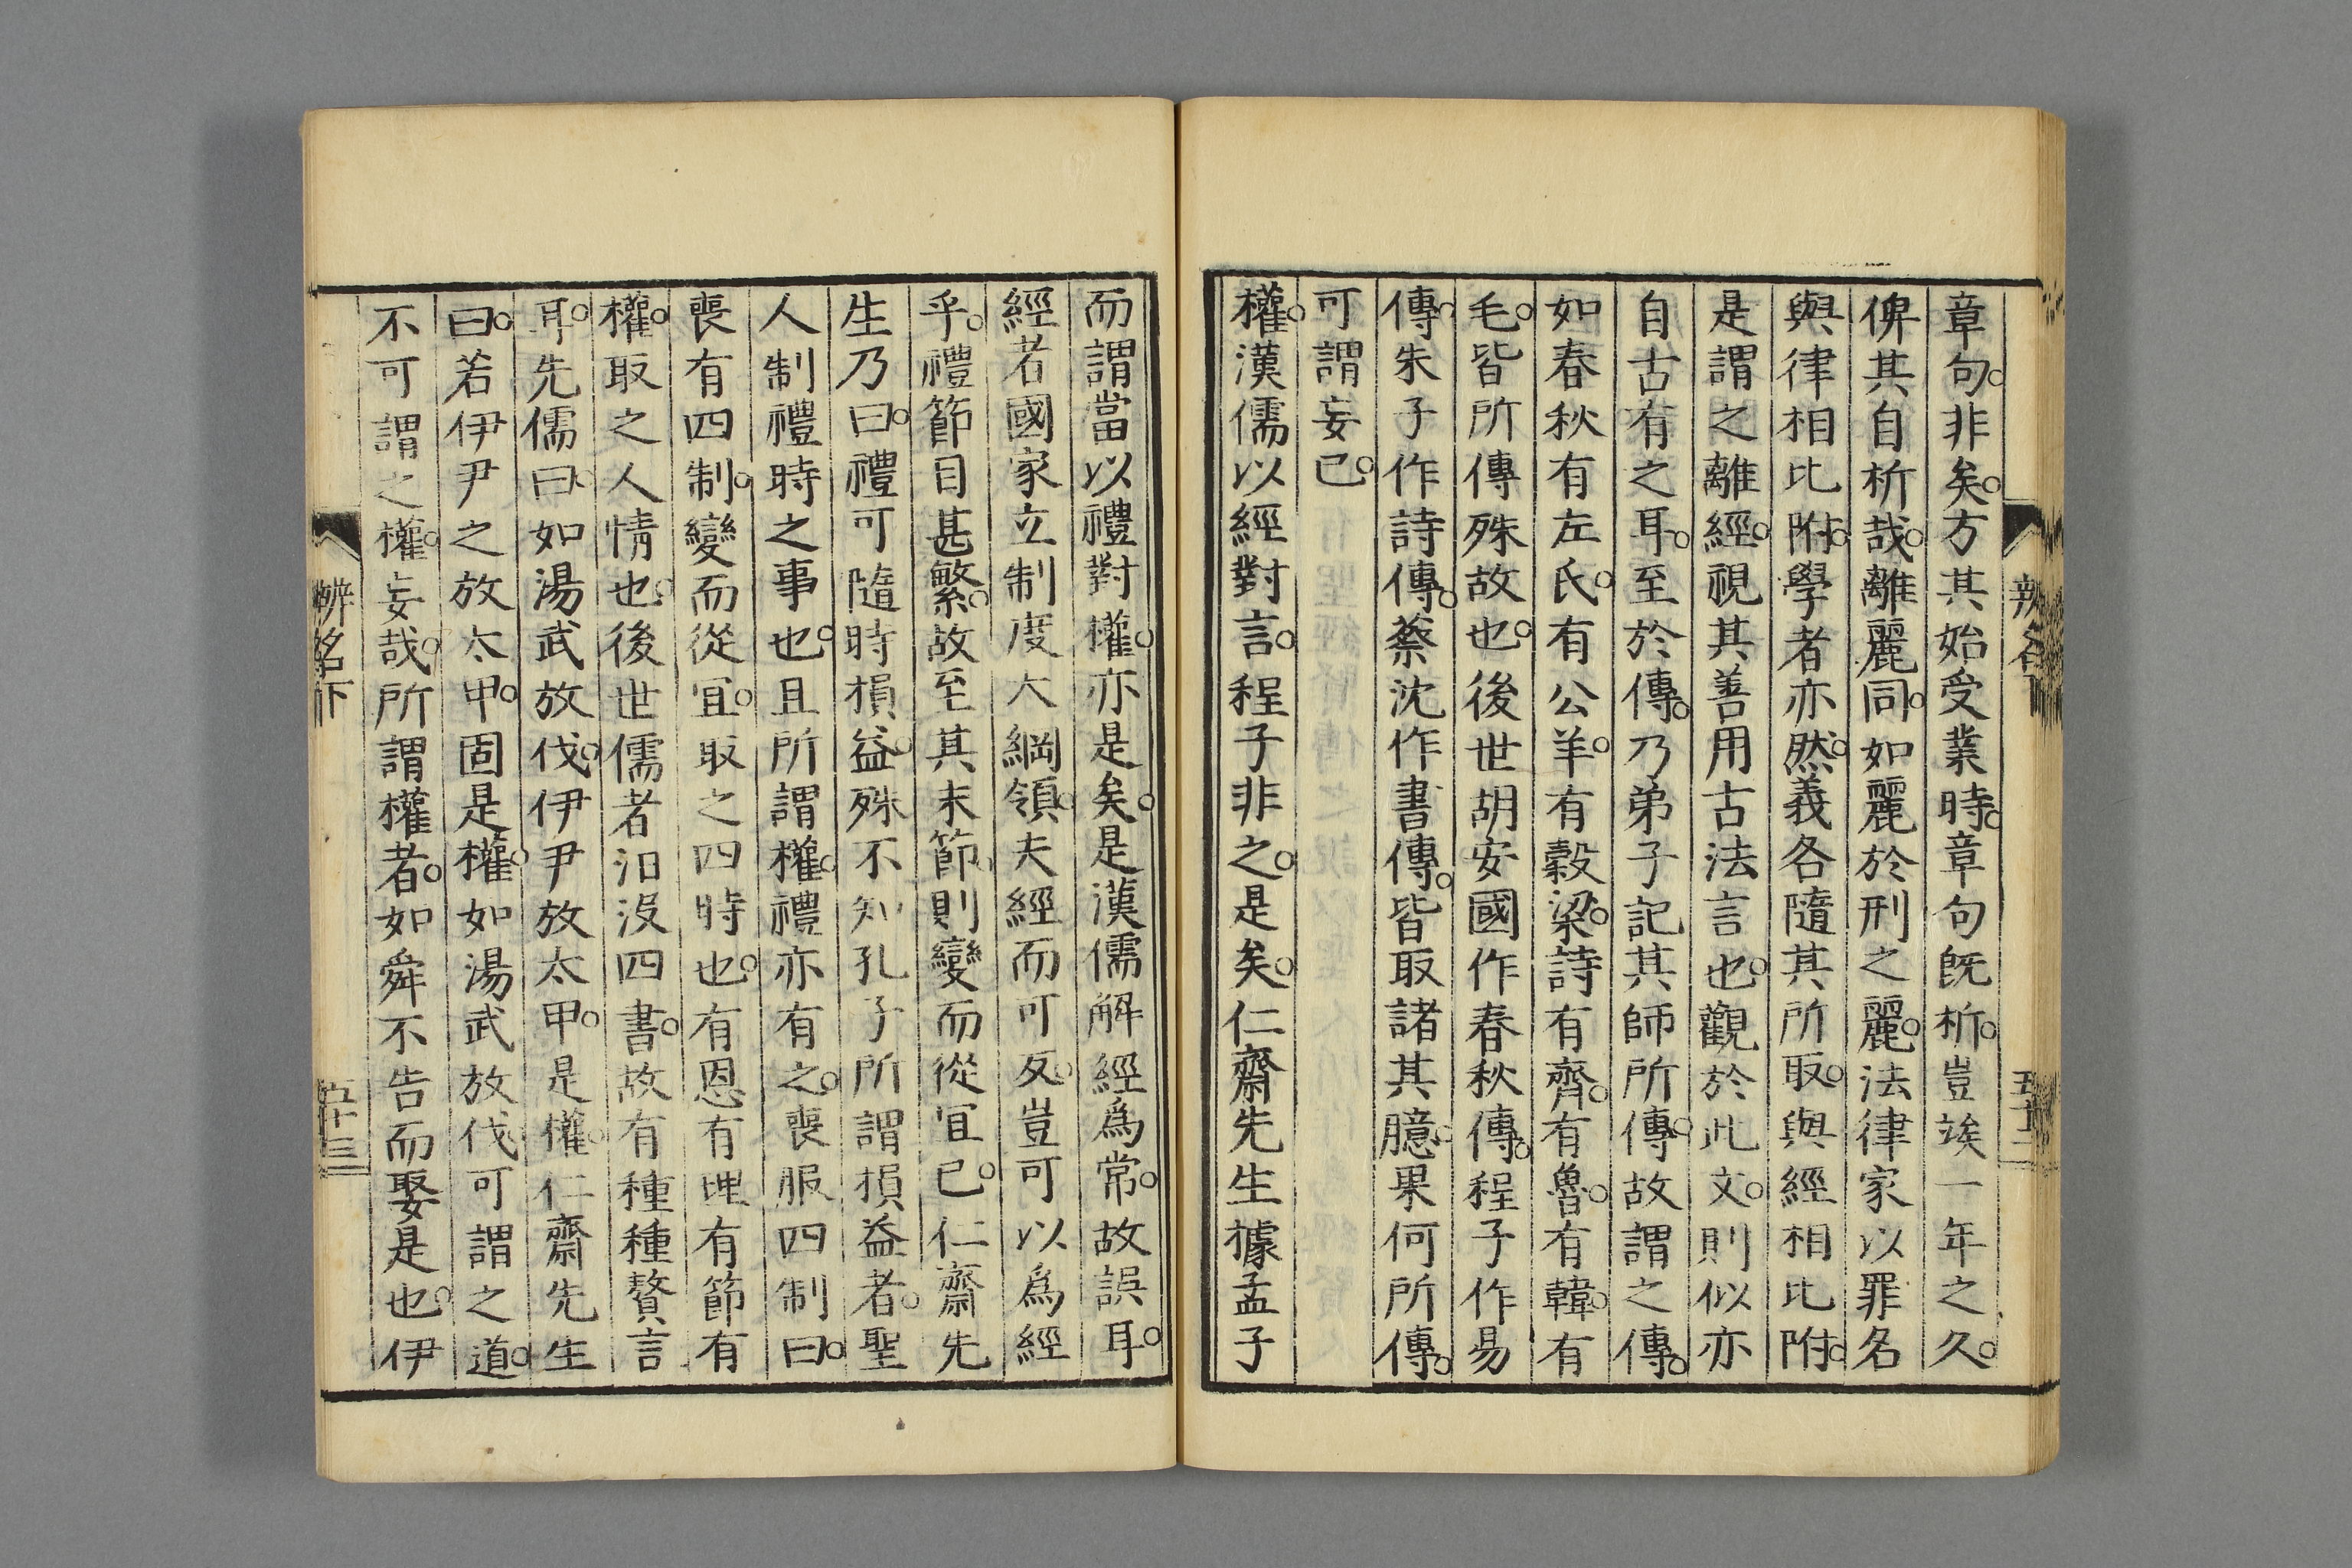 章句。非矣。方其始受業時。章句既析。豈竢一年之久。
俾其自析哉。離麗同。如麗於刑之麗。法律家以罪名
與律相比附。學者亦然。義各隨其所取。與經相比附。
是謂之離經。視其善用古法言也。觀於此文。則似亦
自古有之耳。至於傳。乃弟子記其師所傳。故謂之傳。
如春秋有左氏。有公羊。有穀梁。詩有齊。有魯。有韓。有
毛。皆所傳殊故也。後世胡安國作春秋傳。程子作易
傳。朱子作詩傳。蔡沈作書傳。皆取諸其臆。果何所傳。
可謂妄已。
權。漢儒以經對言。程子非之。是矣。仁齋先生據孟子
辨名下
五十二
而謂當以禮對權。亦是矣。是漢儒解經爲常。故誤耳。
經者國家立制度大綱領。夫經而可反。豈可以爲經
乎。禮節目甚繁。故至其末節。則變而從宜已。仁齋先
生乃曰。禮可隨時損益。殊不知孔子所謂損益者。聖
人制禮時之事也。且所謂權。禮亦有之。喪服四制曰。
喪有四制。變而從宜。取之四時也。有恩有理有節有
權。取之人情也。後世儒者汨沒四書。故有種種贅言
耳。先儒曰。如湯武放伐。伊尹放太甲。是權。仁齋先生
曰。若伊尹之放太甲。固是權。如湯武放伐。可謂之道。
不可謂之權。妄哉。所謂權者。如舜不告而娶是也。伊
辨名下
五十三